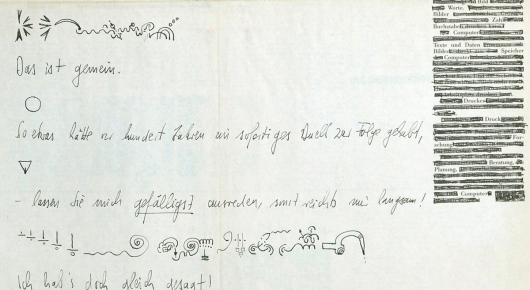 Das ist gemein.
So etwas hätte vor hundert Jahren ein sofortiges Duell zur Folge gehabt,
- lassen Sie mich gefälligst ausreden, sonst reichts mir langsam!
Ich hab's doch gleich gesagt!
Bild
Worte,
Bilder
Zahl
Buchstabe
Computer
Texte und Daten
Bilder Speicher
Computer
Drucker
Druck
Beratung,
Planung,
Computer